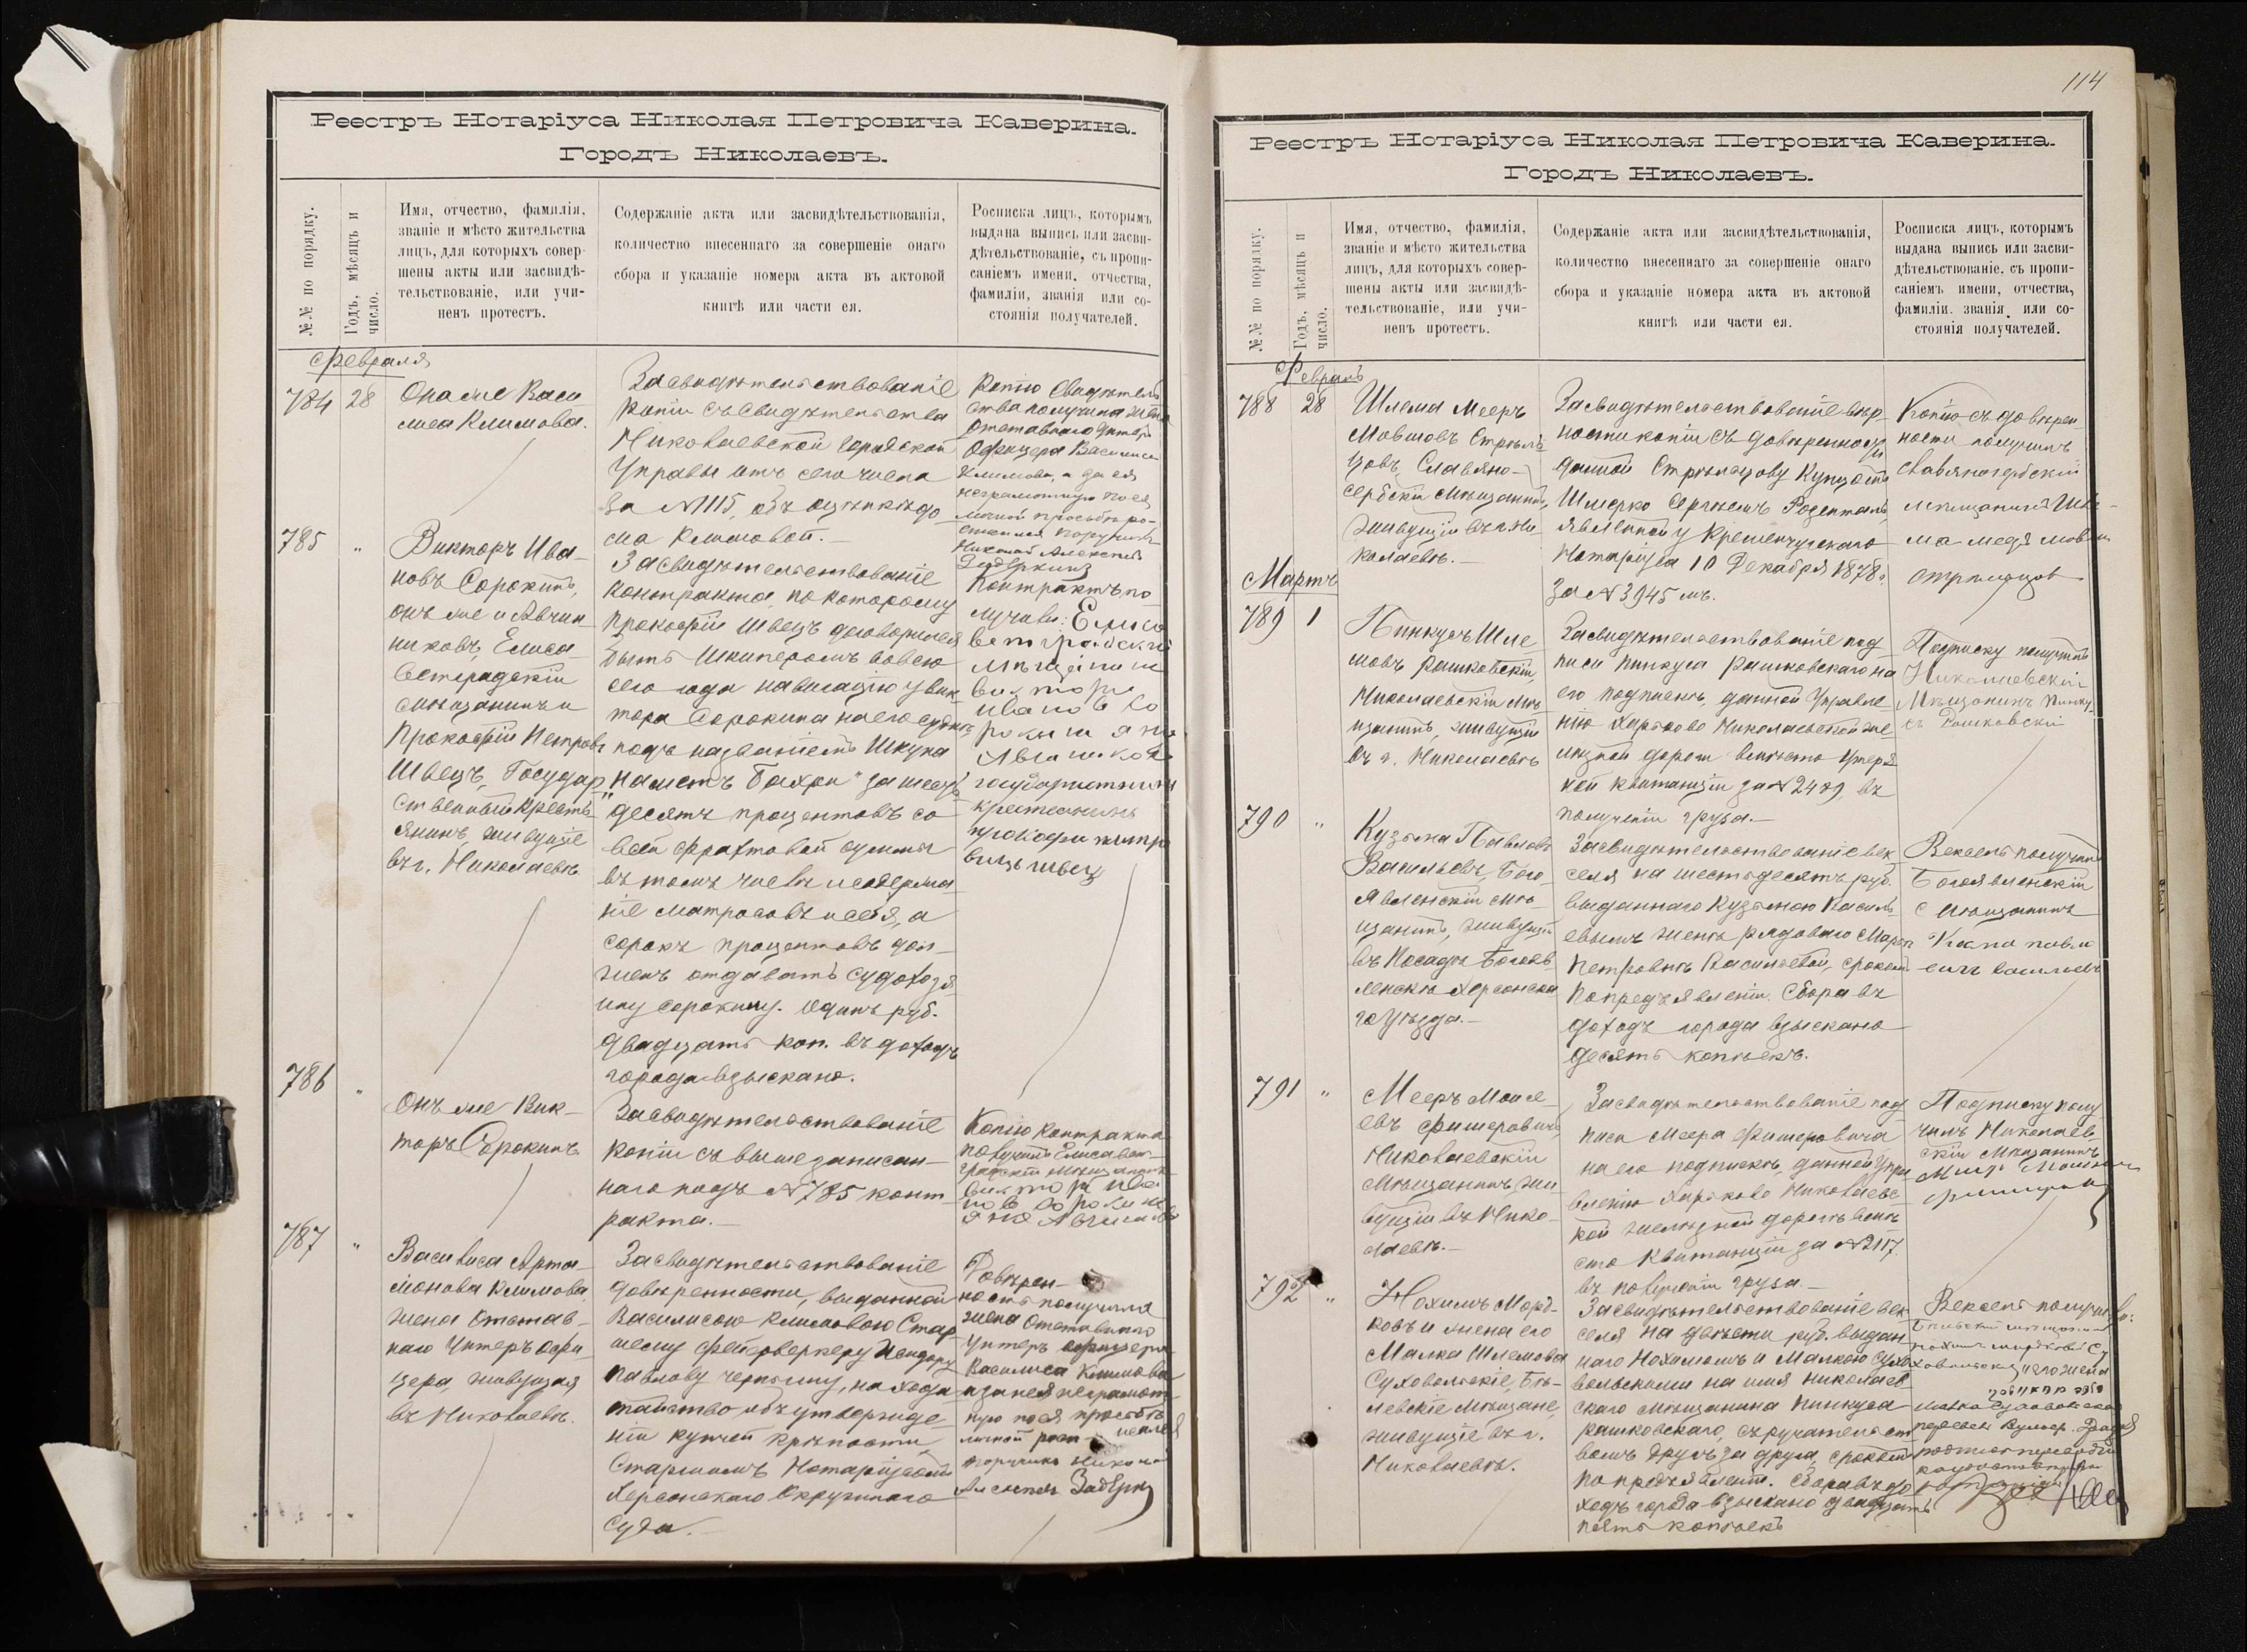 Реестръ Нотаріуса Николая Петровича Каверина.
Городъ Николаевъ.
№№ по порядку.
Годъ, мѣсяцъ и
число.
Имя, отчество, фамилія,
званіе и мѣсто жительства
лицъ, для которыхъ совер-
шены акты или засвидѣ-
тельствованіе, или учи-
ненъ протестъ.
Содержаніе акта или засвидѣтельствованія,
количество внесеннаго за совершеніе онаго
сбора и указаніе номера акта въ актовой
книгѣ или части ея.
Росписка лицъ, которымъ
выдана выпись или засви-
дѣтельствованіе, съ пропи-
саніемъ имени, отчества,
фамиліи, званія или со-
стоянія получателей.
Февраля
784
28
Она же Васи
лиса Климова.
Засвидѣтельствованіе
копіи съ свидѣтельства
Николаевской городской
Управы отъ сего числа
за № 1115, объ оцѣнкѣ до
ма Климовой.
Копію свидѣтель
ства получила жена
отставнаго унтеръ
офицера Василиса
Климова, а за ея
неграмотную по ея
личной просьбѣ ро-
списался поручикъ
Николай Алексѣевъ
785
"
Викторъ Ива-
новъ Сорокинъ,
онъ же и Авчин-
никовъ, Елиса-
ветградскій
мѣщанинъ и
Прокофій Петровъ
Швецъ, Государ
ственный кресть-
янинъ, живущіе
въ г. Николаевѣ
Засвидѣтельствованіе
контракта, по которому
Прокофій Швецъ договорился
быть Шкиперомъ во всю
сего года навигацію у Вик
тора Сорокина на его суднѣ
подъ названіемъ Шкуна
"Наметъ Бахри" за шесть
десятъ процентовъ со
всей фрахтовой суммы
въ томъ числѣ и содержа
ніе матросовъ и себя, а
сорокъ процентовъ дол-
женъ отдавать судохозя
ину Сорокину. Одинъ руб.
двадцать коп. въ доходъ
города взыскано.
Контрактъ по-
лучили: Елиса
ветградский
мѣщанин
Виктор
Иванов Со
рокин
государственны
крестьянинъ
прокофи петро
вичь швец
786
"
Онъ же Вик-
торъ Сорокинъ
Засвидѣтельствованіе
копіи съ вышезаписан-
наго подъ № 785 конт-
ракта.
Копію контракта
получилъ Елисавет-
градскій мѣщанинъ
Виктор Ива
нов Сорокин
787
"
Василиса Арта-
монова Климова
жена отстав-
наго унтеръ офи
цера, живущая
въ Николаевѣ.
Засвидѣтельствованіе
довѣренности, выданной
Василисою Климовою Стар
шему фейерверкеру Исидору
Павлову Чернышу, на хода
тайство объ утвержде
ніи купчей крѣпости
Старшимъ Нотаріусомъ
Херсонскаго Окружнаго
Суда.
Довѣрен-
ность получила
жена отставнаго
унтеръ офицера
Василиса Климова
а за нея неграмот-
ную по ея просьбѣ
личной росписался
поручикъ Николай
114
Реестръ Нотаріуса Николая Петровича Каверина.
Городъ Николаевъ.
№№ по порядку.
Годъ, мѣсяцъ и
число.
Имя, отчество, фамилія,
званіе и мѣсто жительства
лицъ, для которыхъ совер-
шены акты или засвидѣ-
тельствованіе, или учи-
ненъ протестъ.
Содержаніе акта или засвидѣтельствованія,
количество внесеннаго за совершеніе онаго
сбора и указаніе номера акта въ актовой
книгѣ или части ея.
Росписка лицъ, которымъ
выдана выпись или засви-
дѣтельствованіе, съ пропи-
саніемъ имени, отчества,
фамиліи, званія или со-
стоянія получателей.
Февраль
788
28
Шлема Мееръ
Мовшовъ Стрѣль
цовъ, Славяно-
сербскій мѣщанинъ,
живущій въ г. Ни-
колаевѣ.
Засвидѣтельствованіе вѣр-
ности копіи съ довѣренности
данной Стрѣльцову Купцомъ
Шмерко Сергѣемъ Розенталь,
явленной у Кременчугскаго
Нотаріуса 10 Декабря 1878 г.
за № 3945 мъ.
Копію съ довѣрен-
ности получилъ
славяносербскій
мѣщанинъ Шле-
Мартъ
789
1
Пинкусъ Шле
мовъ Рашковскій,
Николаевскій мѣ
щанинъ, живущій
въ г. Николаевѣ
Засвидѣтельствованіе под
писи Пинкуса Рашковскаго на
его подпискѣ, данной Управле
нію Харьково Николаевской же
лѣзной дороги вмѣсто утерян
ной квитанціи за № 2489, въ
полученіи груза.
Подписку получилъ
Николаевскій
Мѣщанинъ Пинку-
съ Рашковскій
790
"
Кузьма Павловъ
Васильевъ, Бого-
явленскій мѣ-
щанинъ, живущій
въ Посадѣ Богояв
ленскѣ Херсонска
го уѣзда.
Засвидѣтельствованіе век
селя на шестьдесятъ руб.
выданнаго Кузьмою Василь
евымъ женѣ рядоваго Марѳѣ
Петровнѣ Васильевой, срокомъ
по предъявленіи. Сбора въ
доходъ города взыскано
десять копѣекъ.
Вексель получилъ
Богоявленскій
мѣщанинъ
791
"
Мееръ Моисе-
евъ Фишеровичъ,
Николаевскій
мѣщанинъ, жи-
вущій въ Нико-
лаевѣ.
Засвидѣтельствованіе под
писи Меера Фишеровича
на его подпискѣ, данной Упра
вленію Харьково Николаевс
кой желѣзной дороги вмѣ
сто квитанціи за № 2117.
въ полученіи груза.
Подписку полу
чилъ Николаев-
скій мѣщанинъ
792
"
Нохимъ Морд-
ковъ и жена его
Малка Шлемова
Суховольскіе, Бѣ-
левскіе мѣщане,
живущіе въ г.
Николаевѣ.
Засвидѣтельствованіе век
селя на двѣсти руб. выдан
наго Нохимомъ и Малкою Сухо
вольскими на имя Николаев-
скаго мѣщанина Пинкуса
Рашковскаго, съ ручательст
вомъ другъ за друга, срокомъ
по предъявленіи. Сбора въ до
ходъ города взыскано двадцать
пять копѣекъ
Вексель получили: